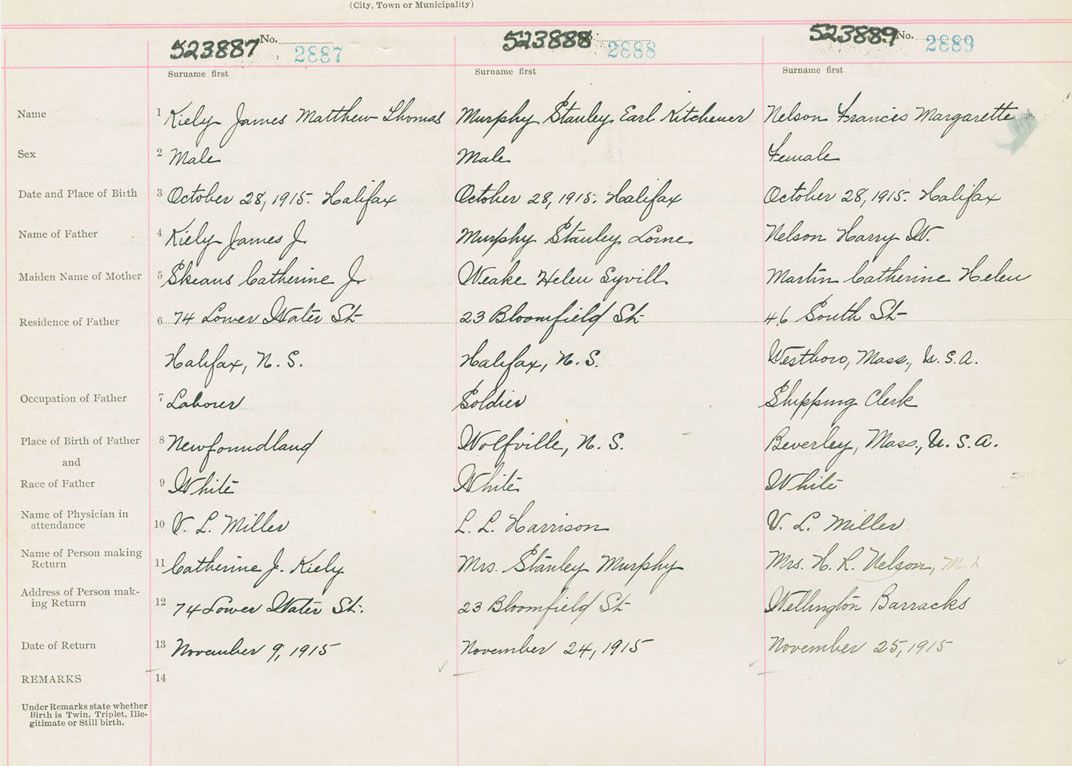 (City, Town or Municipality)
523887 No. 2887 523888 2888 523889 No. 2889
Surname first Surname first Surname first
Name 1 Kiely James Matthew Thomas Murphy Stanley Earl Kitchener Nelson Francis Margarette
Sex 2 Male Male Female
Date and Place of Birth 3 October 28, 1915. Halifax October 28, 1915. Halifax October 28, 1915. Halifax
Name of Father 4 Kiely James J. Murphy Stanley Lorne Nelson Harry W.
Maiden Name of Mother 5 Skeans Catherine J. Weake Helen Syvill Martin Catherine Helen
Residence of Father 6 74 Lower Water St. 23 Bloomfield St. 46 South St.
Halifax, N. S. Halifax, N. S. Westboro, Mass., U. S. A.
Occupation of Father 7 Laborer Soldier Shipping Clerk
Place of Birth of Father 8 Newfoundland Wolfville, N. S. Beverley, Mass., U. S. A.
and
Race of Father 9 White White White
Name of Physician in
attendance 10 V. L. Miller L. L. Harrison V. L. Miller
Name of Person making
Return 11 Catherine J. Kiely Mrs. Stanley Murphy Mrs. H. R. Nelson,
Address of Person mak-
ing Return 12 74 Lower Water St. 23 Bloomfield St. Wellington Barracks
Date of Return 13 November 9, 1915 November 24, 1915 November 25, 1915
REMARKS 14
Under Remarks state whether
Birth is Twin, Triplet, Ille-
gitimate or Still birth.